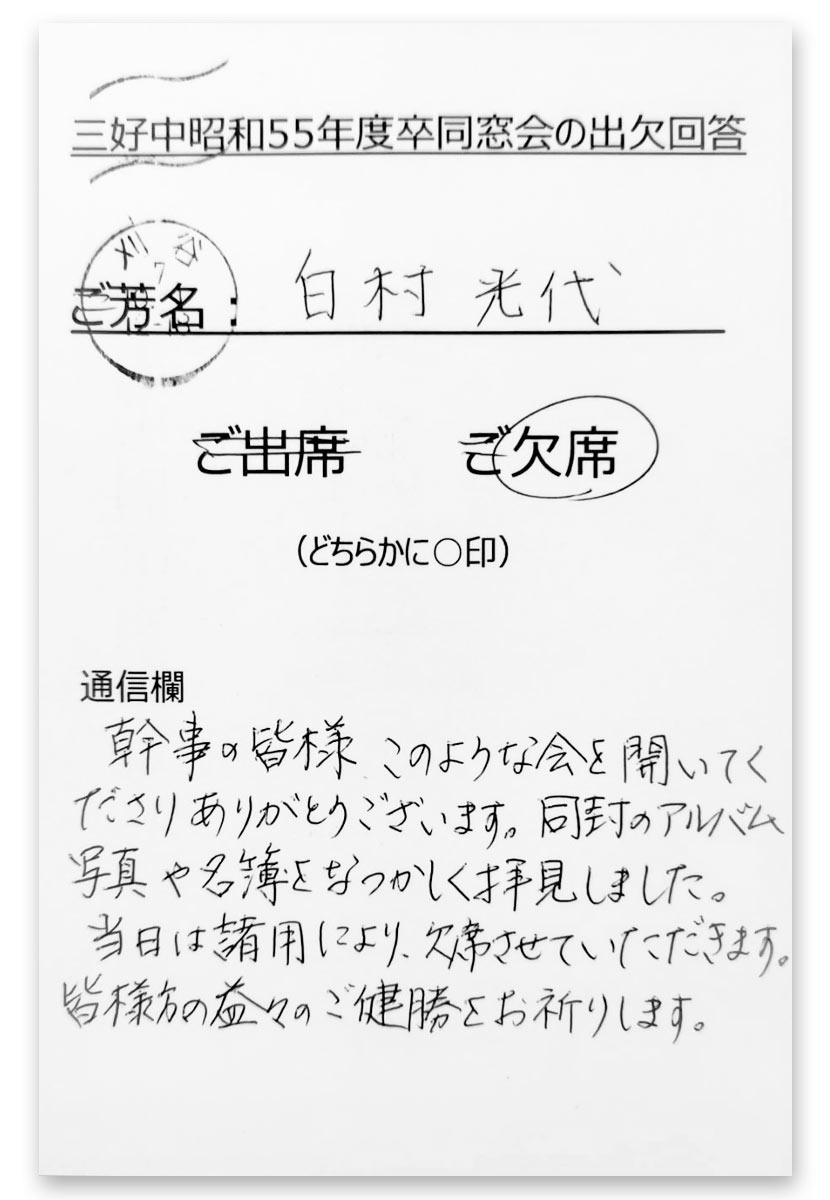 三好中昭和55年度卒同窓会の出欠回答
ご芳名: 白村 光代
ご出席 ご欠席
(どちらかに○印)
通信欄
幹事の皆様 このような会を開いてく
ださりありがとうございます。同封のアルバム
写真や名簿をなつかしく拝見しました。
当日は諸用により、欠席させていただきます。
皆様方の益々のご健勝をお祈りします。